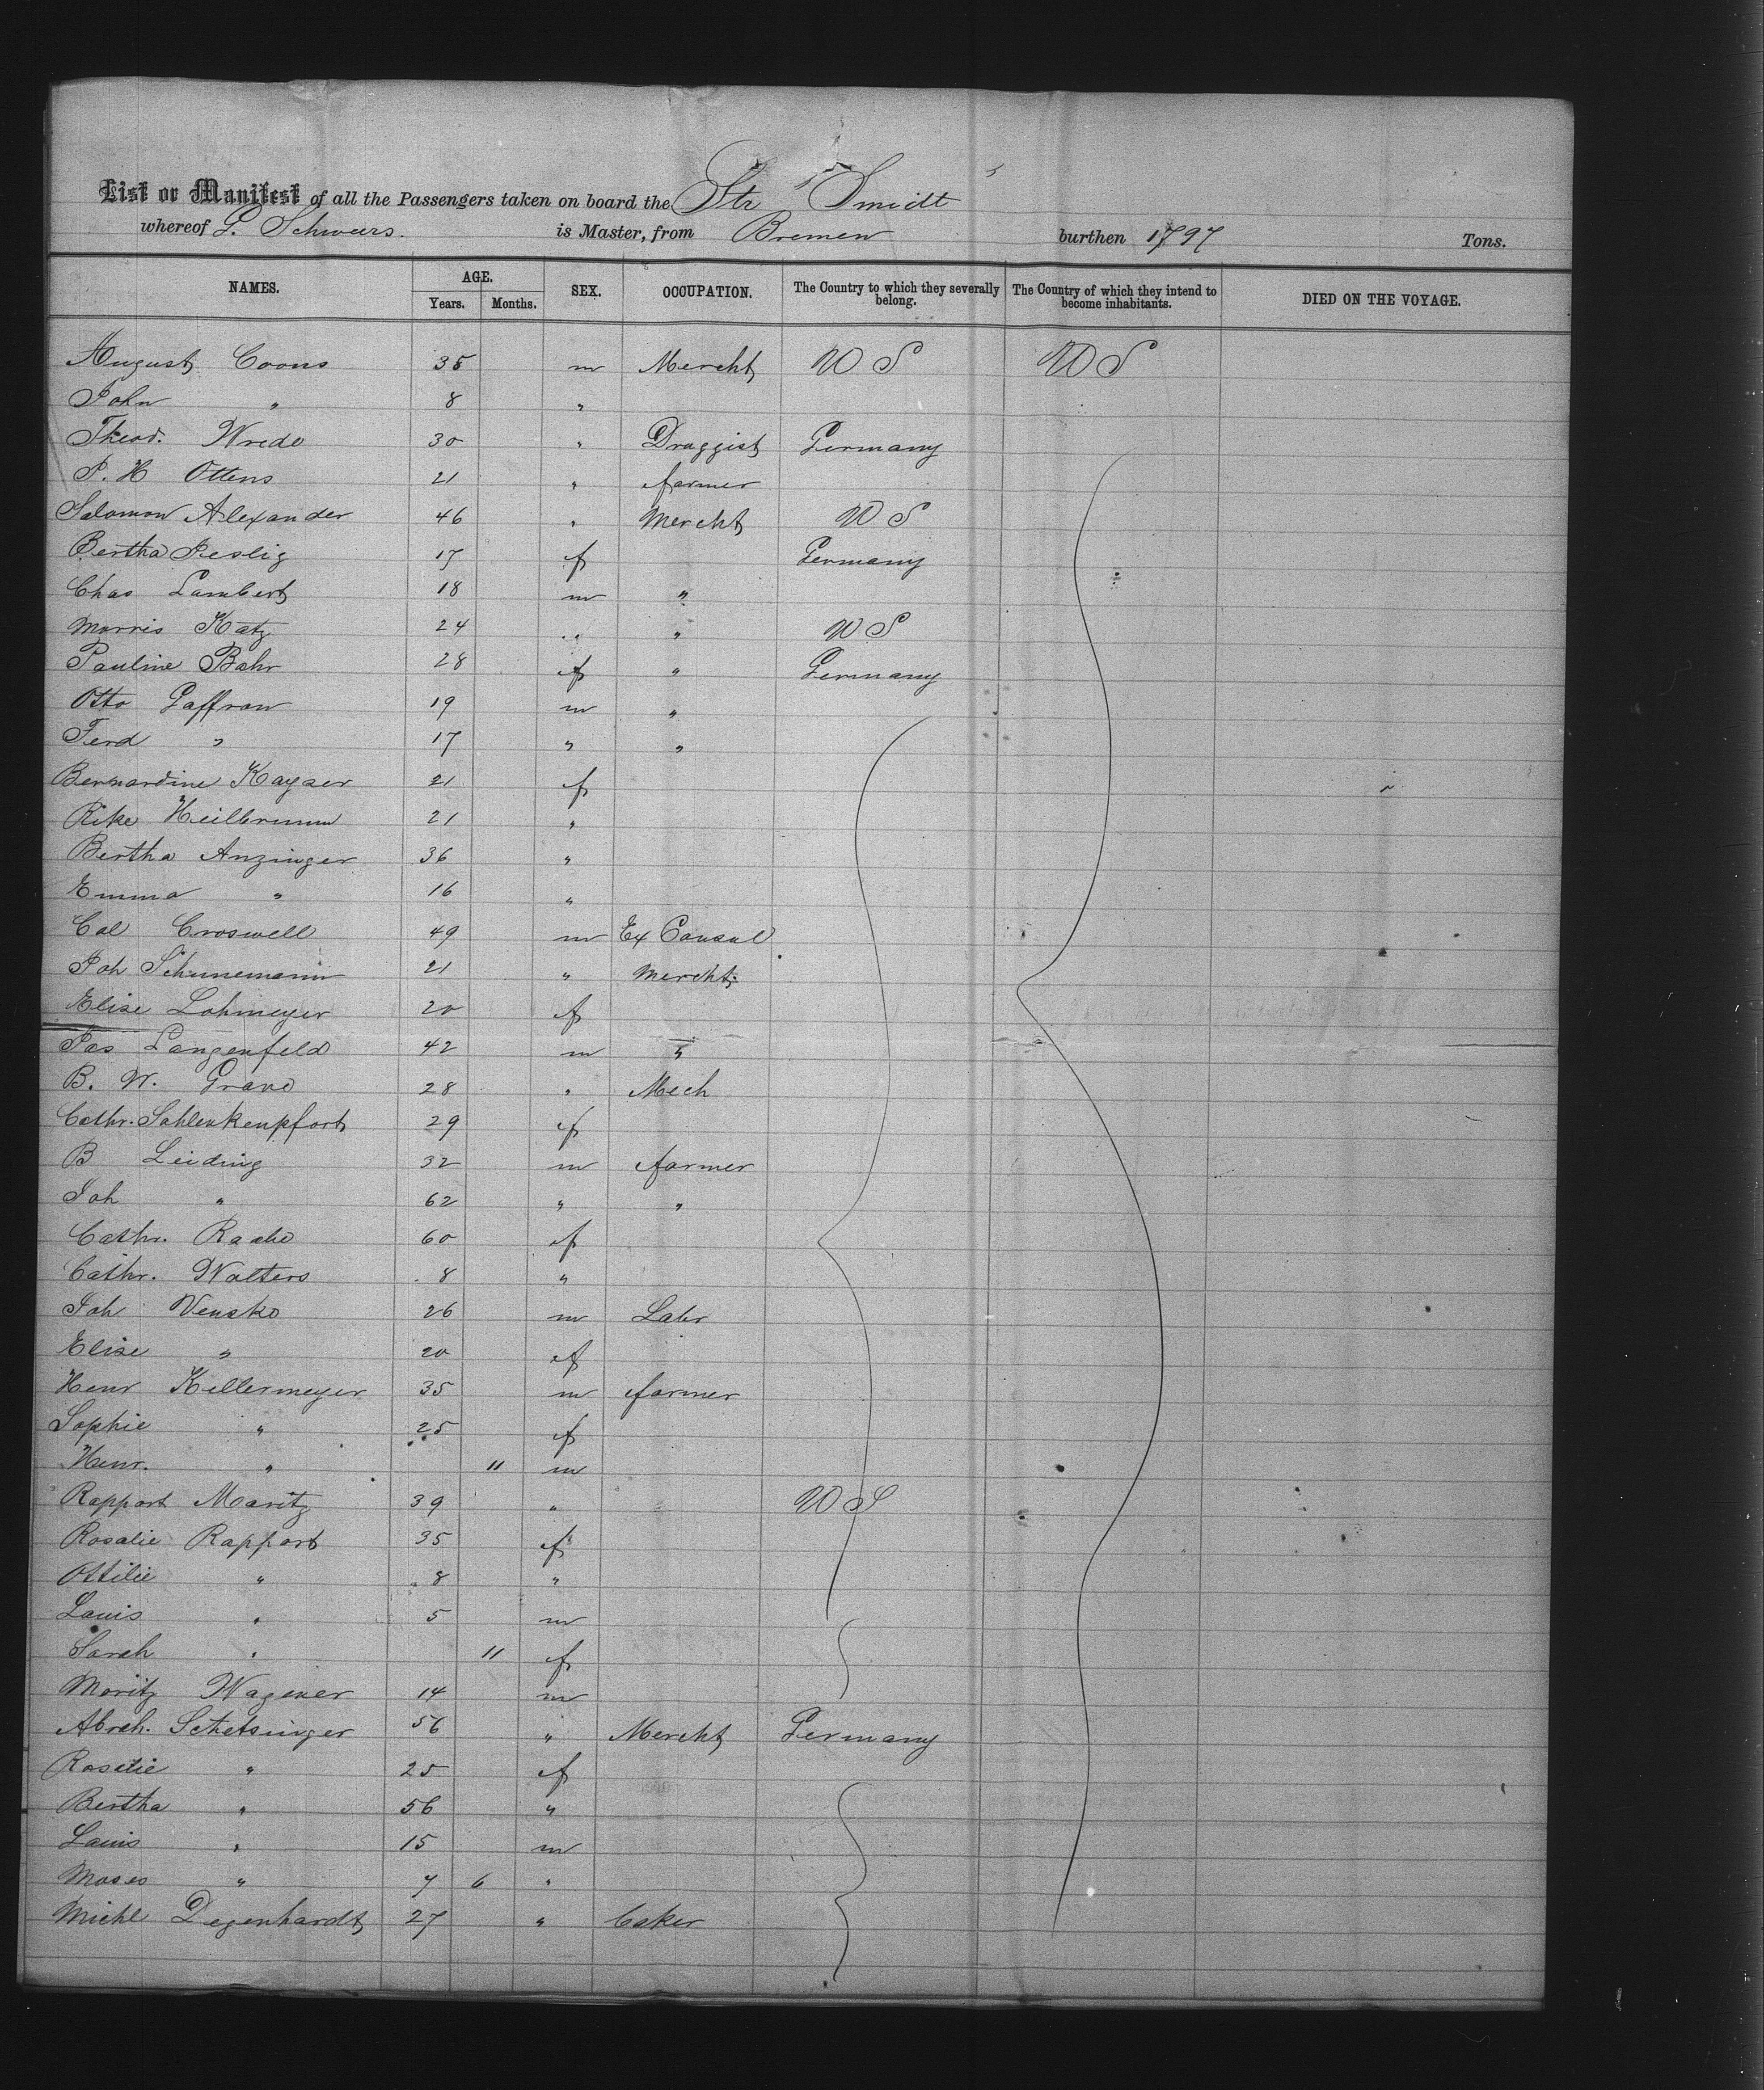 List or Manifest of all the Passengers taken on board the Str "Smidt
whereof L. Schweers. is Master, from Bremen burthen 1797 Tons.
NAMES. AGE. Years. Months. SEX. OCCUPATION. The Country to which they severally belong. The Country of which they intend to become inhabitants. DIED ON THE VOYAGE.
August Coons 35 m Mercht U S U S
John " 8 "
Theod. Wrede 30 " Druggist Germany
P. H Ottens 21 " farmer
Salomon Alexander 46 " Mercht U S
Bertha 17 f Germany
Chas Lambert 18 m "
Morris Katz 24 " " U S
Pauline Bahr 28 f " Germany
Otto Gaffron 19 m "
Ferd " 17 " "
Bernardine Kayser 21 f
Rike Heilbrunn 21 "
Bertha Anzinger 36 "
Emma " 16 "
Col Croswell 49 m Ex Consul
Joh Schunemann 21 " Mercht
Elise Lohmeyer 20 f
Jas Langenfeld 42 m "
B. W. Grave 28 " Mech
Cathr. 29 f
B Leiding 32 m farmer
Joh " 62 " "
Cathr. 60 f
Cathr. Walters 8 "
Joh Vensko 26 m Labr
Elise " 20 f
Henr Kellermeyer 35 m farmer
Sophie " 25 f
Henr. " 11 m
Rapport Moritz 39 " U S
Rosalie Rapport 35 f
Ottilie " 8 "
Louis " 5 m
Sarah " 11 f
Moritz Wagener 14 m
Abrah. Schetsinger 56 " Mercht Germany
Rosalie " 25 f
Bertha " 56 "
Louis " 15 m
Moses " 7 6 "
Michl Degenhardt 27 " baker